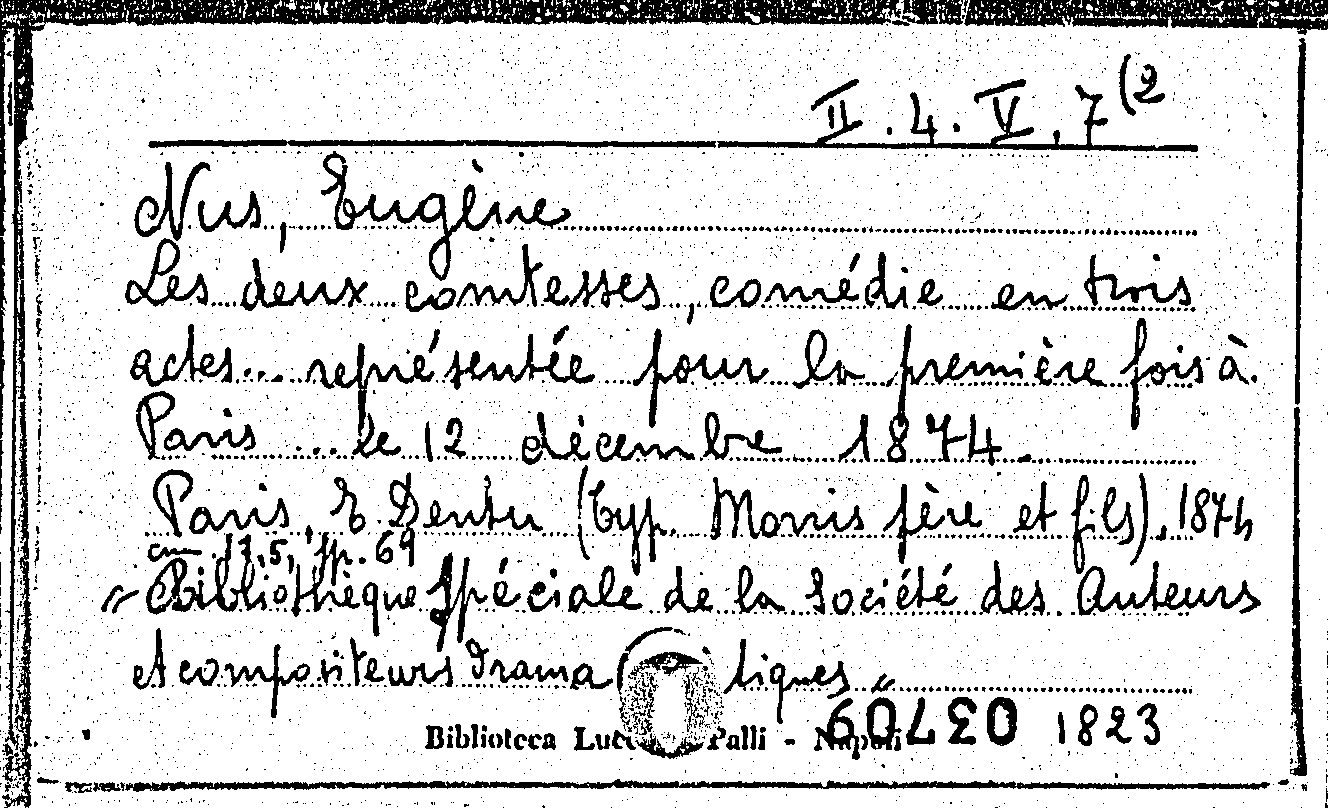 II. 4. V. 7(2
Nus, Eugène
Les deux comtesses, comédie en trois
actes... représentée pour la première fois à
Paris ... le 12 décembre 1874.
Paris, E. Dentu (Typ. Morris père et fils), 1874
cm. 17,5, pp. 69
"Bibliothèque spéciale de la Société des Auteurs
et compositeurs dramatiques"
Biblioteca Lucchesi Palli - Napoli
037409 1823